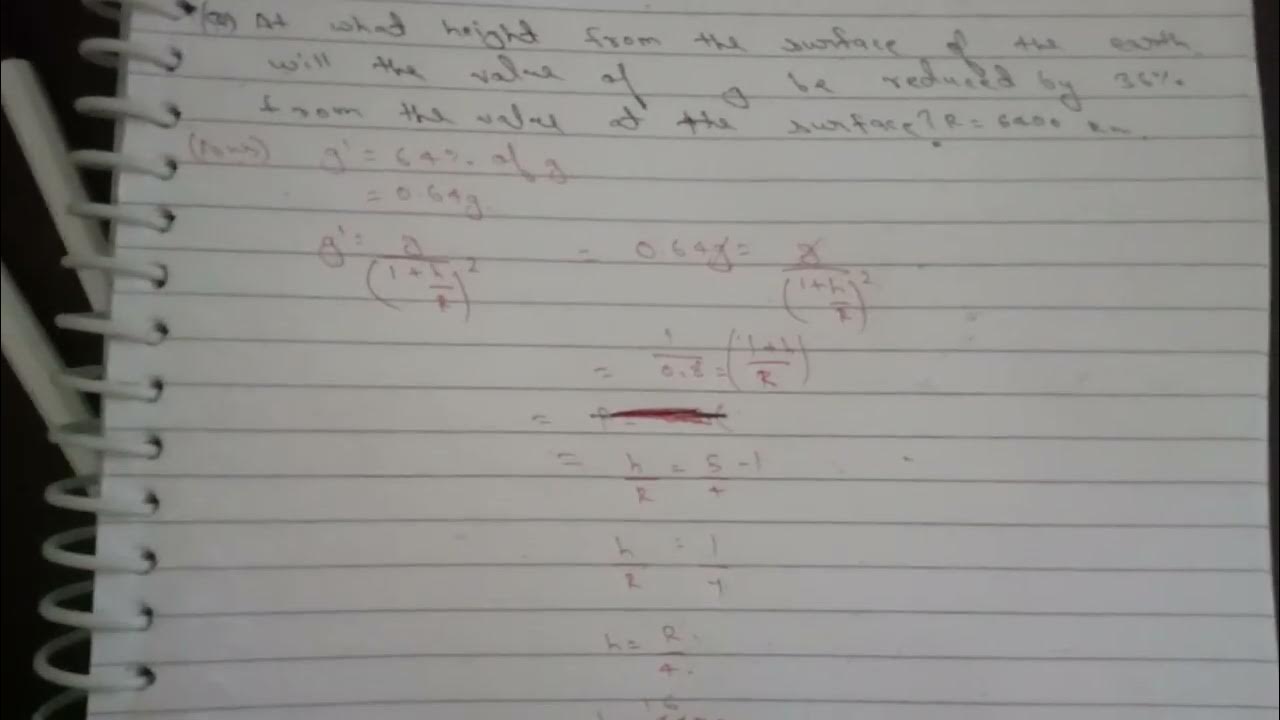 At what height from the surface of the earth
will the value of g be reduced by 36%
from the value at the surface? R = 6400 km
g' = 64% of g
= 0.64g
g' = g/(1 + h/R)² = 0.64g = g/(1 + h/R)²
= 1/0.8 = (1 + h/R)
=
= h/R = 5/4 - 1
h/R = 1/4
h = R/4.
16